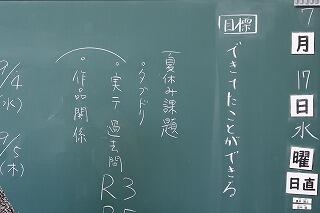 7
月
17
日
水
曜
日直
目標
できてたことができる
夏休み課題
・タブドリ
・実テ過去問
R3
・作品関係
9/4
(水)
9/5
(木)